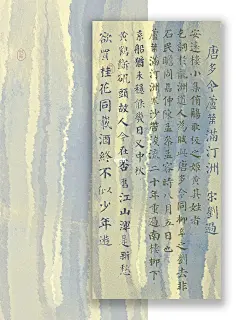 唐多令 蘆葉滿汀洲 宋 劉過
安遠樓小集侑觴歌板之姬黃其姓者
乞詞於龍洲道人為賦此唐多令同柳阜之劉去非
石民瞻周嘉仲陳孟參孟容時八月五日也
蘆葉滿汀洲寒沙帶淺流二十年重過南樓柳下
繫船猶未穩能幾日又中秋
黃鶴斷磯頭故人今在否舊江山渾是新愁
欲買桂花同載酒終不似少年遊